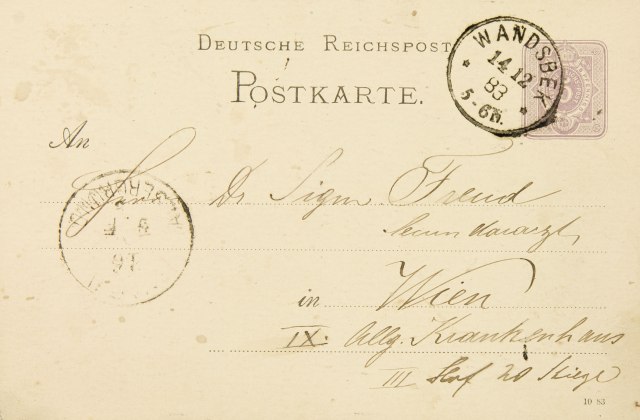 DEUTSCHE REICHSPOST
POSTKARTE.
WANDSBEK
14 12
83
5-6N.
An
Herrn Dr Sigm. Freud
Secundararzt
in Wien
IX. Allg. Krankenhaus
III Hof 20 Stiege
10 83